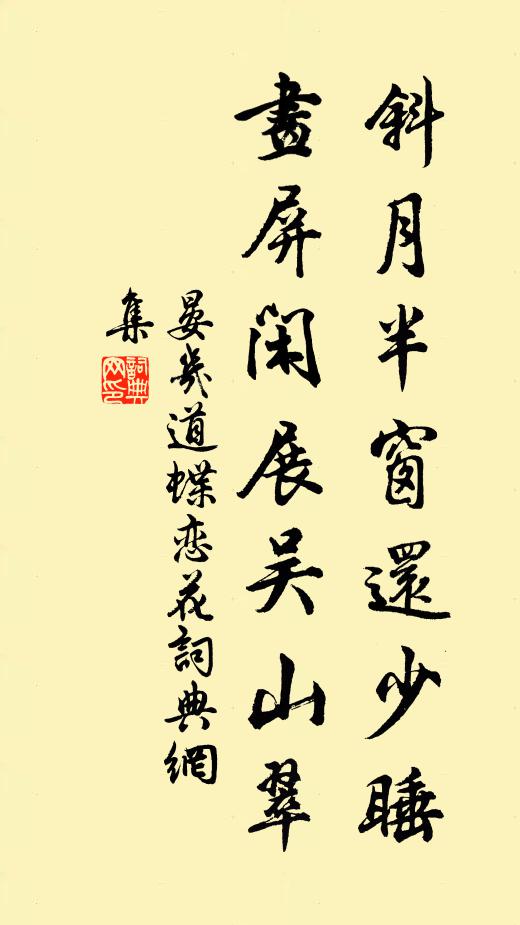 斜月半窗還少睡
畫屏閑展吳山翠
晏幾道蝶恋花詞典網
集
詞典
网印